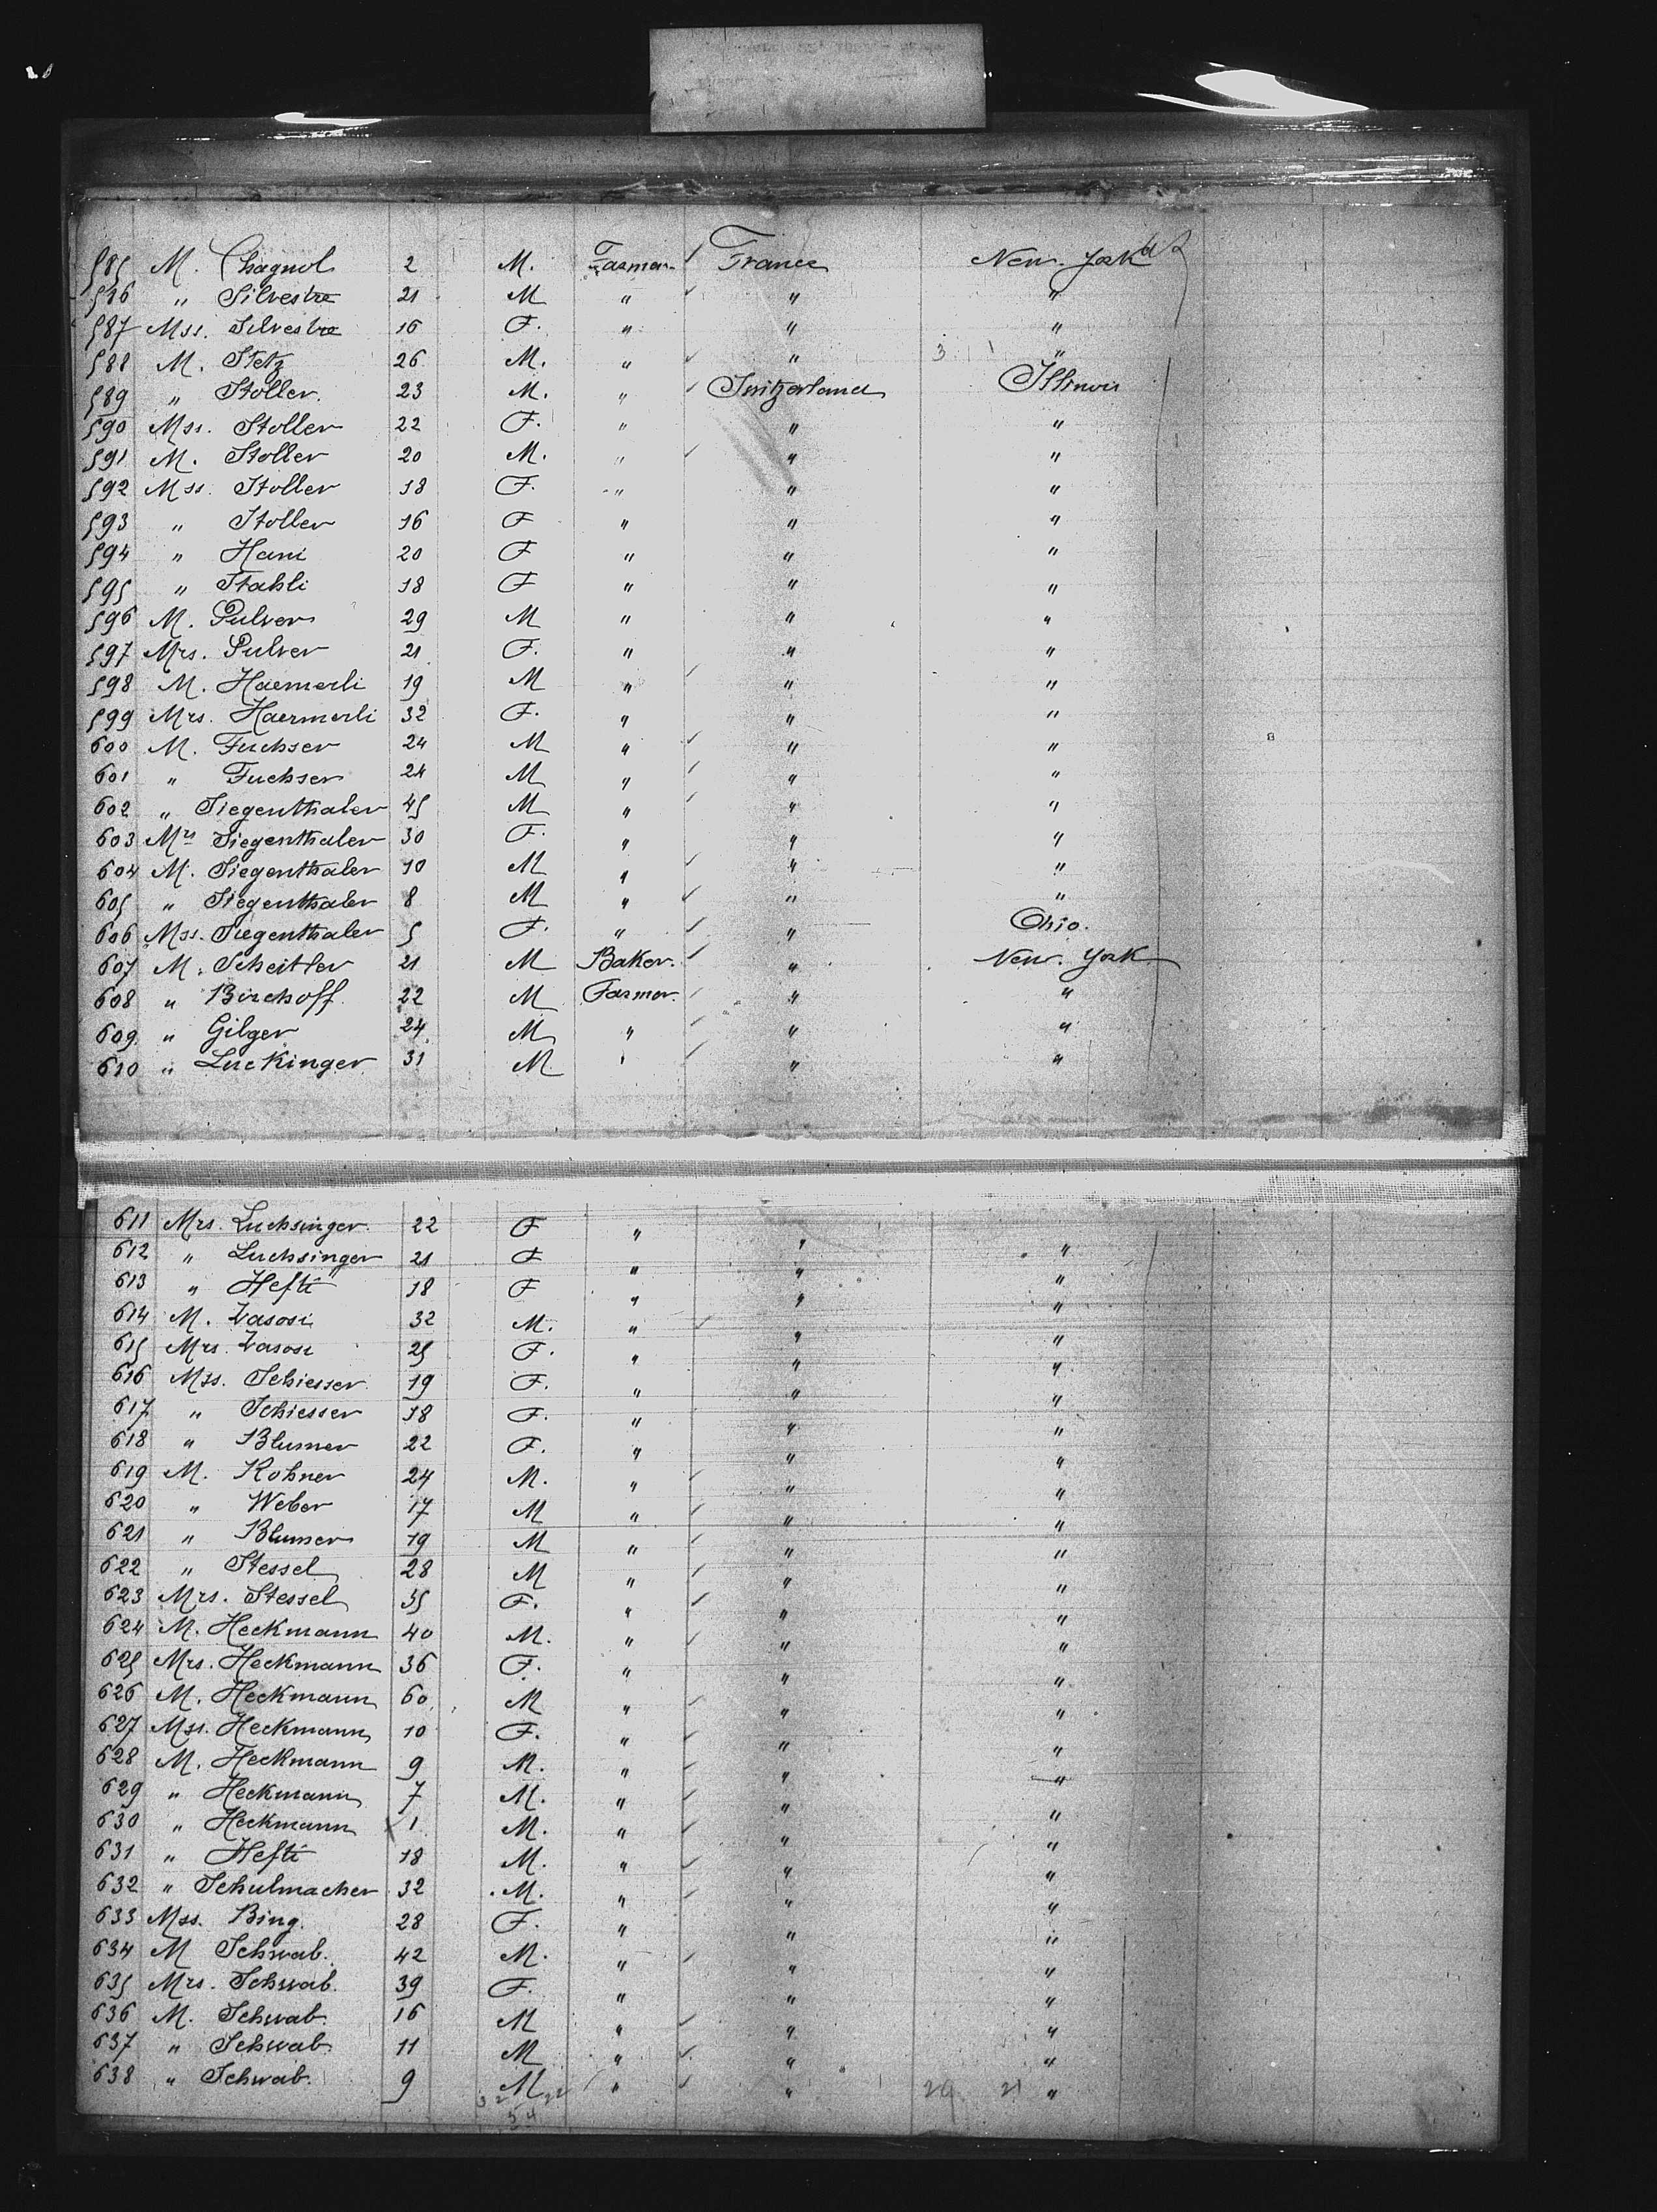 585 M. Chagnol 2 M. Farmer France New-York
586 " Silvestre 21 M " " "
587 Mss. Silvestre 16 F. " " "
588 M. Stetz 26 M. " " 3 "
589 " Stoller. 23 M. " Switzerland Illinois
590 Mss. Stoller 22 F. " " "
591 M. Stoller 20 M. " " "
592 Mss. Stoller 18 F. " " "
593 " Stoller 16 F " " "
594 " Hani 20 F " " "
595 " Stahli 18 F " " "
596 M. Pulver 29 M " " "
597 Mrs. Pulver 21 F. " " "
598 M. Haemerli 19 M " " "
599 Mrs. Haermerli 32 F. " " "
600 M. Fuchser 24 M " " "
601 " Fuchser 24 M " " "
602 " Siegenthaler 45 M " " "
603 Mrs Siegenthaler 30 F. " " "
604 M. Siegenthaler 10 M " " "
605 " Siegenthaler 8 M " " "
606 Mss. Siegenthaler 5 F. " " Ohio.
607 M. Scheitler 21 M Baker. " New-York
608 " Birchoff. 22 M Farmer. " "
609. " Gilger 24. M " " "
610 " Luckinger 31 M. " " "
611 Mrs. Luchsinger. 22 F " " "
612 " Luchsinger 21 F " " "
613 " Hefti 18 F " " "
614 M. Zasosi 32 M. " " "
615 Mrs. Zasosi 25 F. " " "
616 Mss. Schiesser. 19 F. " " "
617 " Schiesser 18 F. " " "
618 " Blumer 22 F. " " "
619 M. Kohner 24 M. " " "
620 " Weber 17 M " " "
621 " Blumer 19 M " " "
622 " Stessel 28 M " " "
623 Mrs. Stessel 35 F. " " "
624 M. Heckmann 40 M. " " "
625 Mrs. Heckmann 36 F. " " "
626 M. Heckmann 60 M " " "
627 Mss. Heckmann 10 F. " " "
628 M. Heckmann 9 M. " " "
629 " Heckmann 7 M. " " "
630 " Heckmann 1 M. " " "
631 " Hefti 18 M. " " "
632 " Schulmacher 32 M. " " "
633 Mss. Bing. 28 F. " " "
634 M Schwab. 42 M. " " "
635 Mrs. Schwab. 39 F. " " "
636 M. Schwab. 16 M " " "
637 " Schwab. 11 M " " "
638 " Schwab. 9 M " " 29 21 "
32 22
54